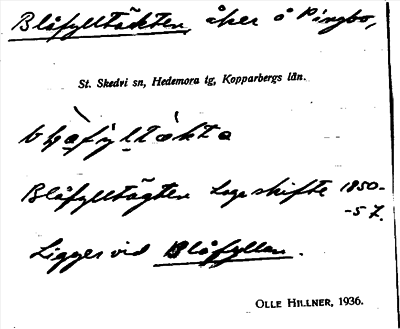 Blåfylltäkten, åker å Pingbo,
St. Skedvi sn, Hedemora tg, Kopparbergs län.
Blåfylltägten Laga skifte 1850-
-57.
Ligger vid Blåfyllen.
OLLE HILLNER, 1936.